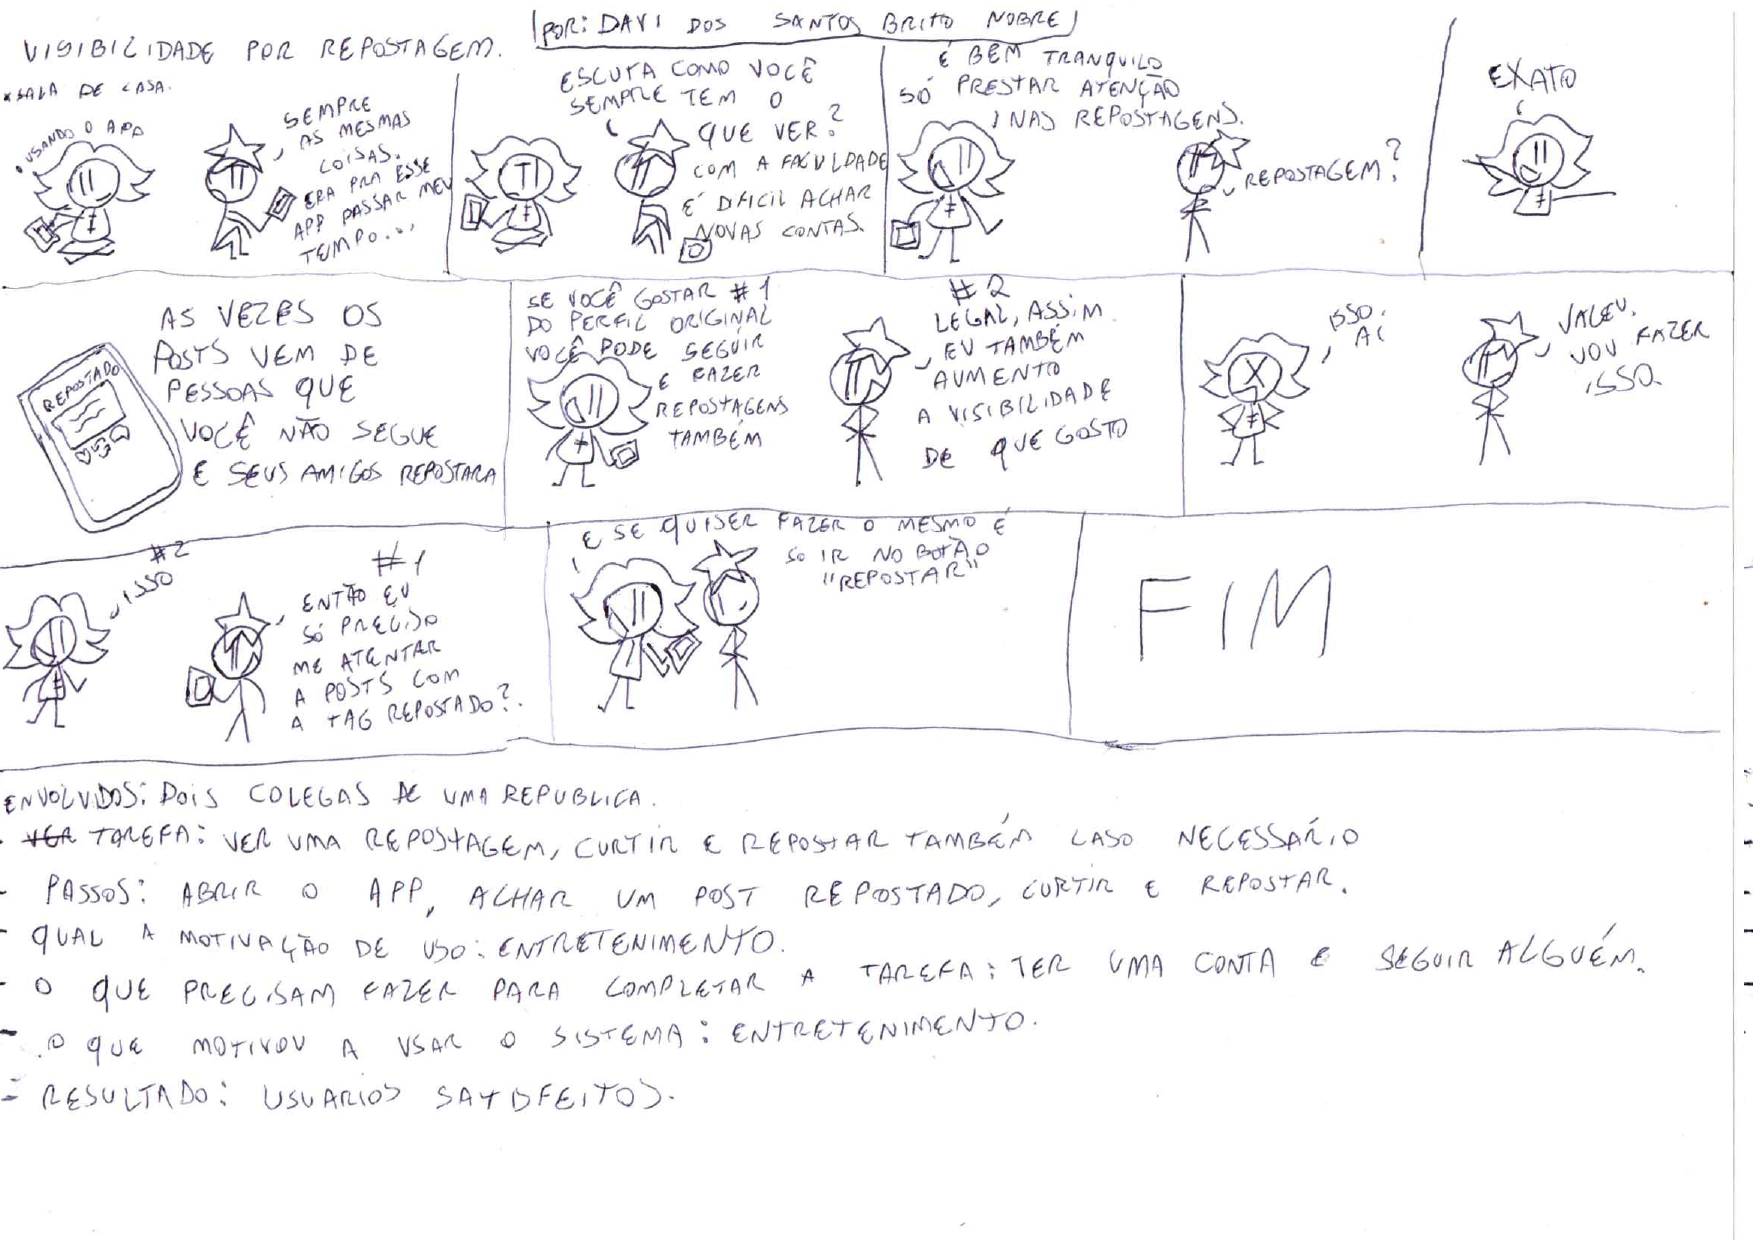 VISIBILIDADE POR REPOSTAGEM.
POR: DAVI DOS SANTOS BRITO NOBRE
*SALA DE CASA.
USANDO O APP
SEMPRE
AS MESMAS
COISAS.
ERA PRA ESSE
APP PASSAR MEU
TEMPO...
ESCUTA COMO VOCÊ
SEMPRE TEM O
QUE VER?
COM A FACULDADE
É DIFICIL ACHAR
NOVAS CONTAS.
É BEM TRANQUILO
SÓ PRESTAR ATENÇÃO
NAS REPOSTAGENS.
REPOSTAGEM?
EXATO
REPOSTADO
AS VEZES OS
POSTS VEM DE
PESSOAS QUE
VOCÊ NÃO SEGUE
E SEUS AMIGOS REPOSTARA
SE VOCÊ GOSTAR #1
DO PERFIL ORIGINAL
VOCÊ PODE SEGUIR
E FAZER
REPOSTAGENS
TAMBÉM
#2
LEGAL, ASSIM
EU TAMBÉM
AUMENTO
A VISIBILIDADE
DE QUE GOSTO
ISSO
AÍ
VALEU.
VOU FAZER
ISSO.
#2
ISSO
#1
ENTÃO EU
SÓ PRECISO
ME ATENTAR
A POSTS COM
A TAG REPOSTADO?.
E SE QUISER FAZER O MESMO É
SO IR NO BOTÃO
"REPOSTAR"
FIM
ENVOLVIDOS: DOIS COLEGAS DE UMA REPUBLICA.
- VER TAREFA: VER UMA REPOSTAGEM, CURTIR E REPOSTAR TAMBÉM CASO NECESSÁRIO
- PASSOS: ABRIR O APP, ACHAR UM POST REPOSTADO, CURTIR E REPOSTAR.
- QUAL A MOTIVAÇÃO DE USO: ENTRETENIMENTO.
- O QUE PRECISAM FAZER PARA COMPLETAR A TAREFA: TER UMA CONTA E SEGUIR ALGUÉM.
- O QUE MOTIVOU A USAR O SISTEMA: ENTRETENIMENTO.
- RESULTADO: USUARIOS SATISFEITOS.